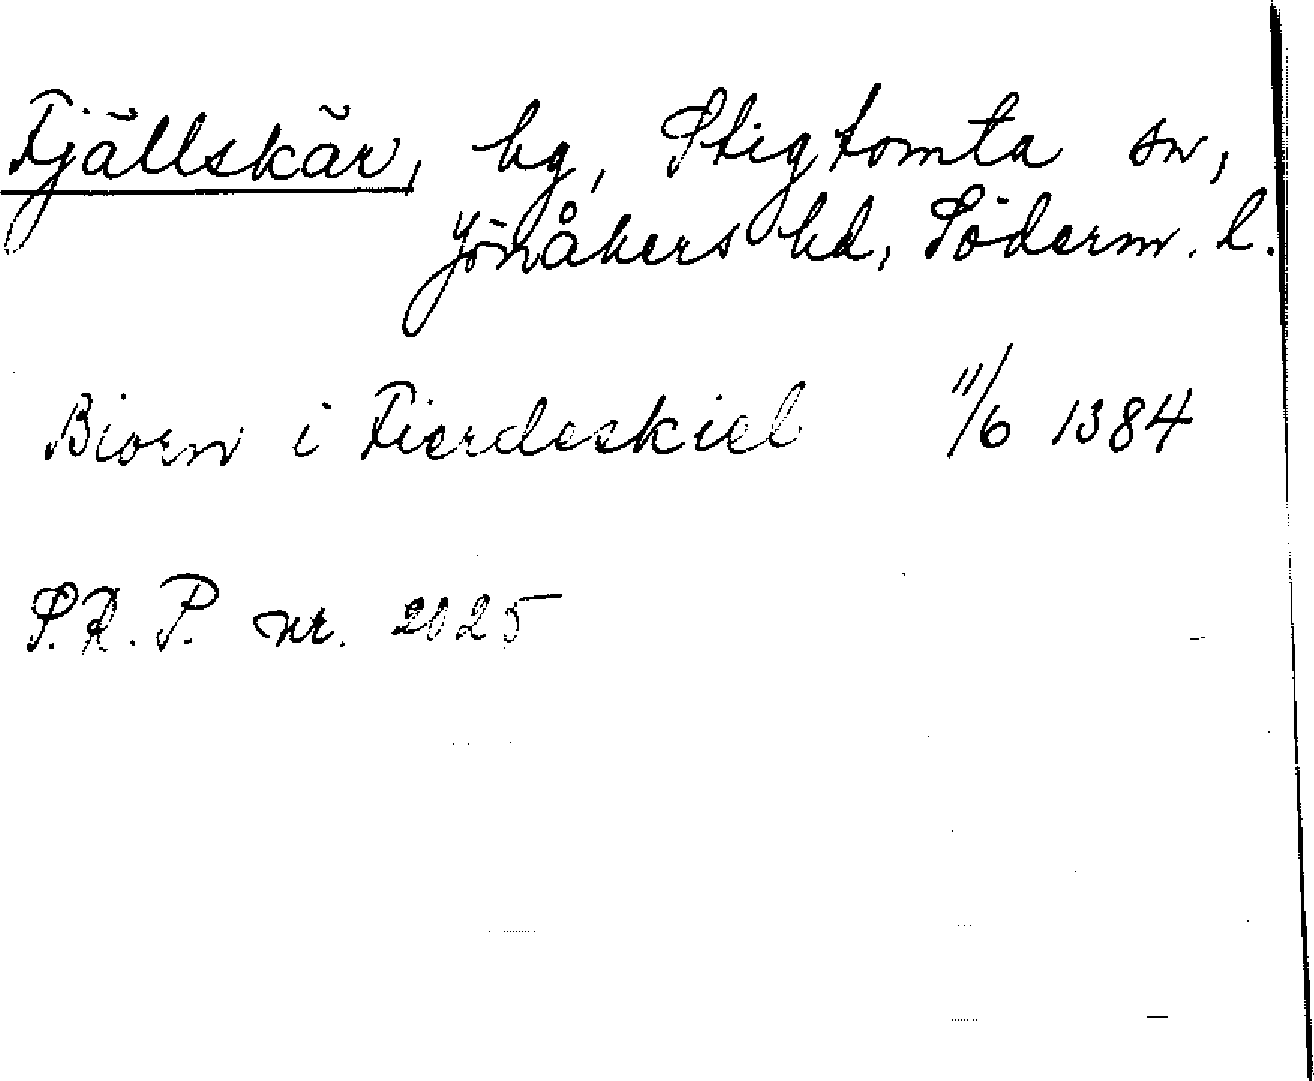 Fjällskär, hg, Stigtomta sn,
Jönåkers hd, Söderm. l.
Biorn i Fierdeskiel 11/6 1384
S.R.P. nr. 2025